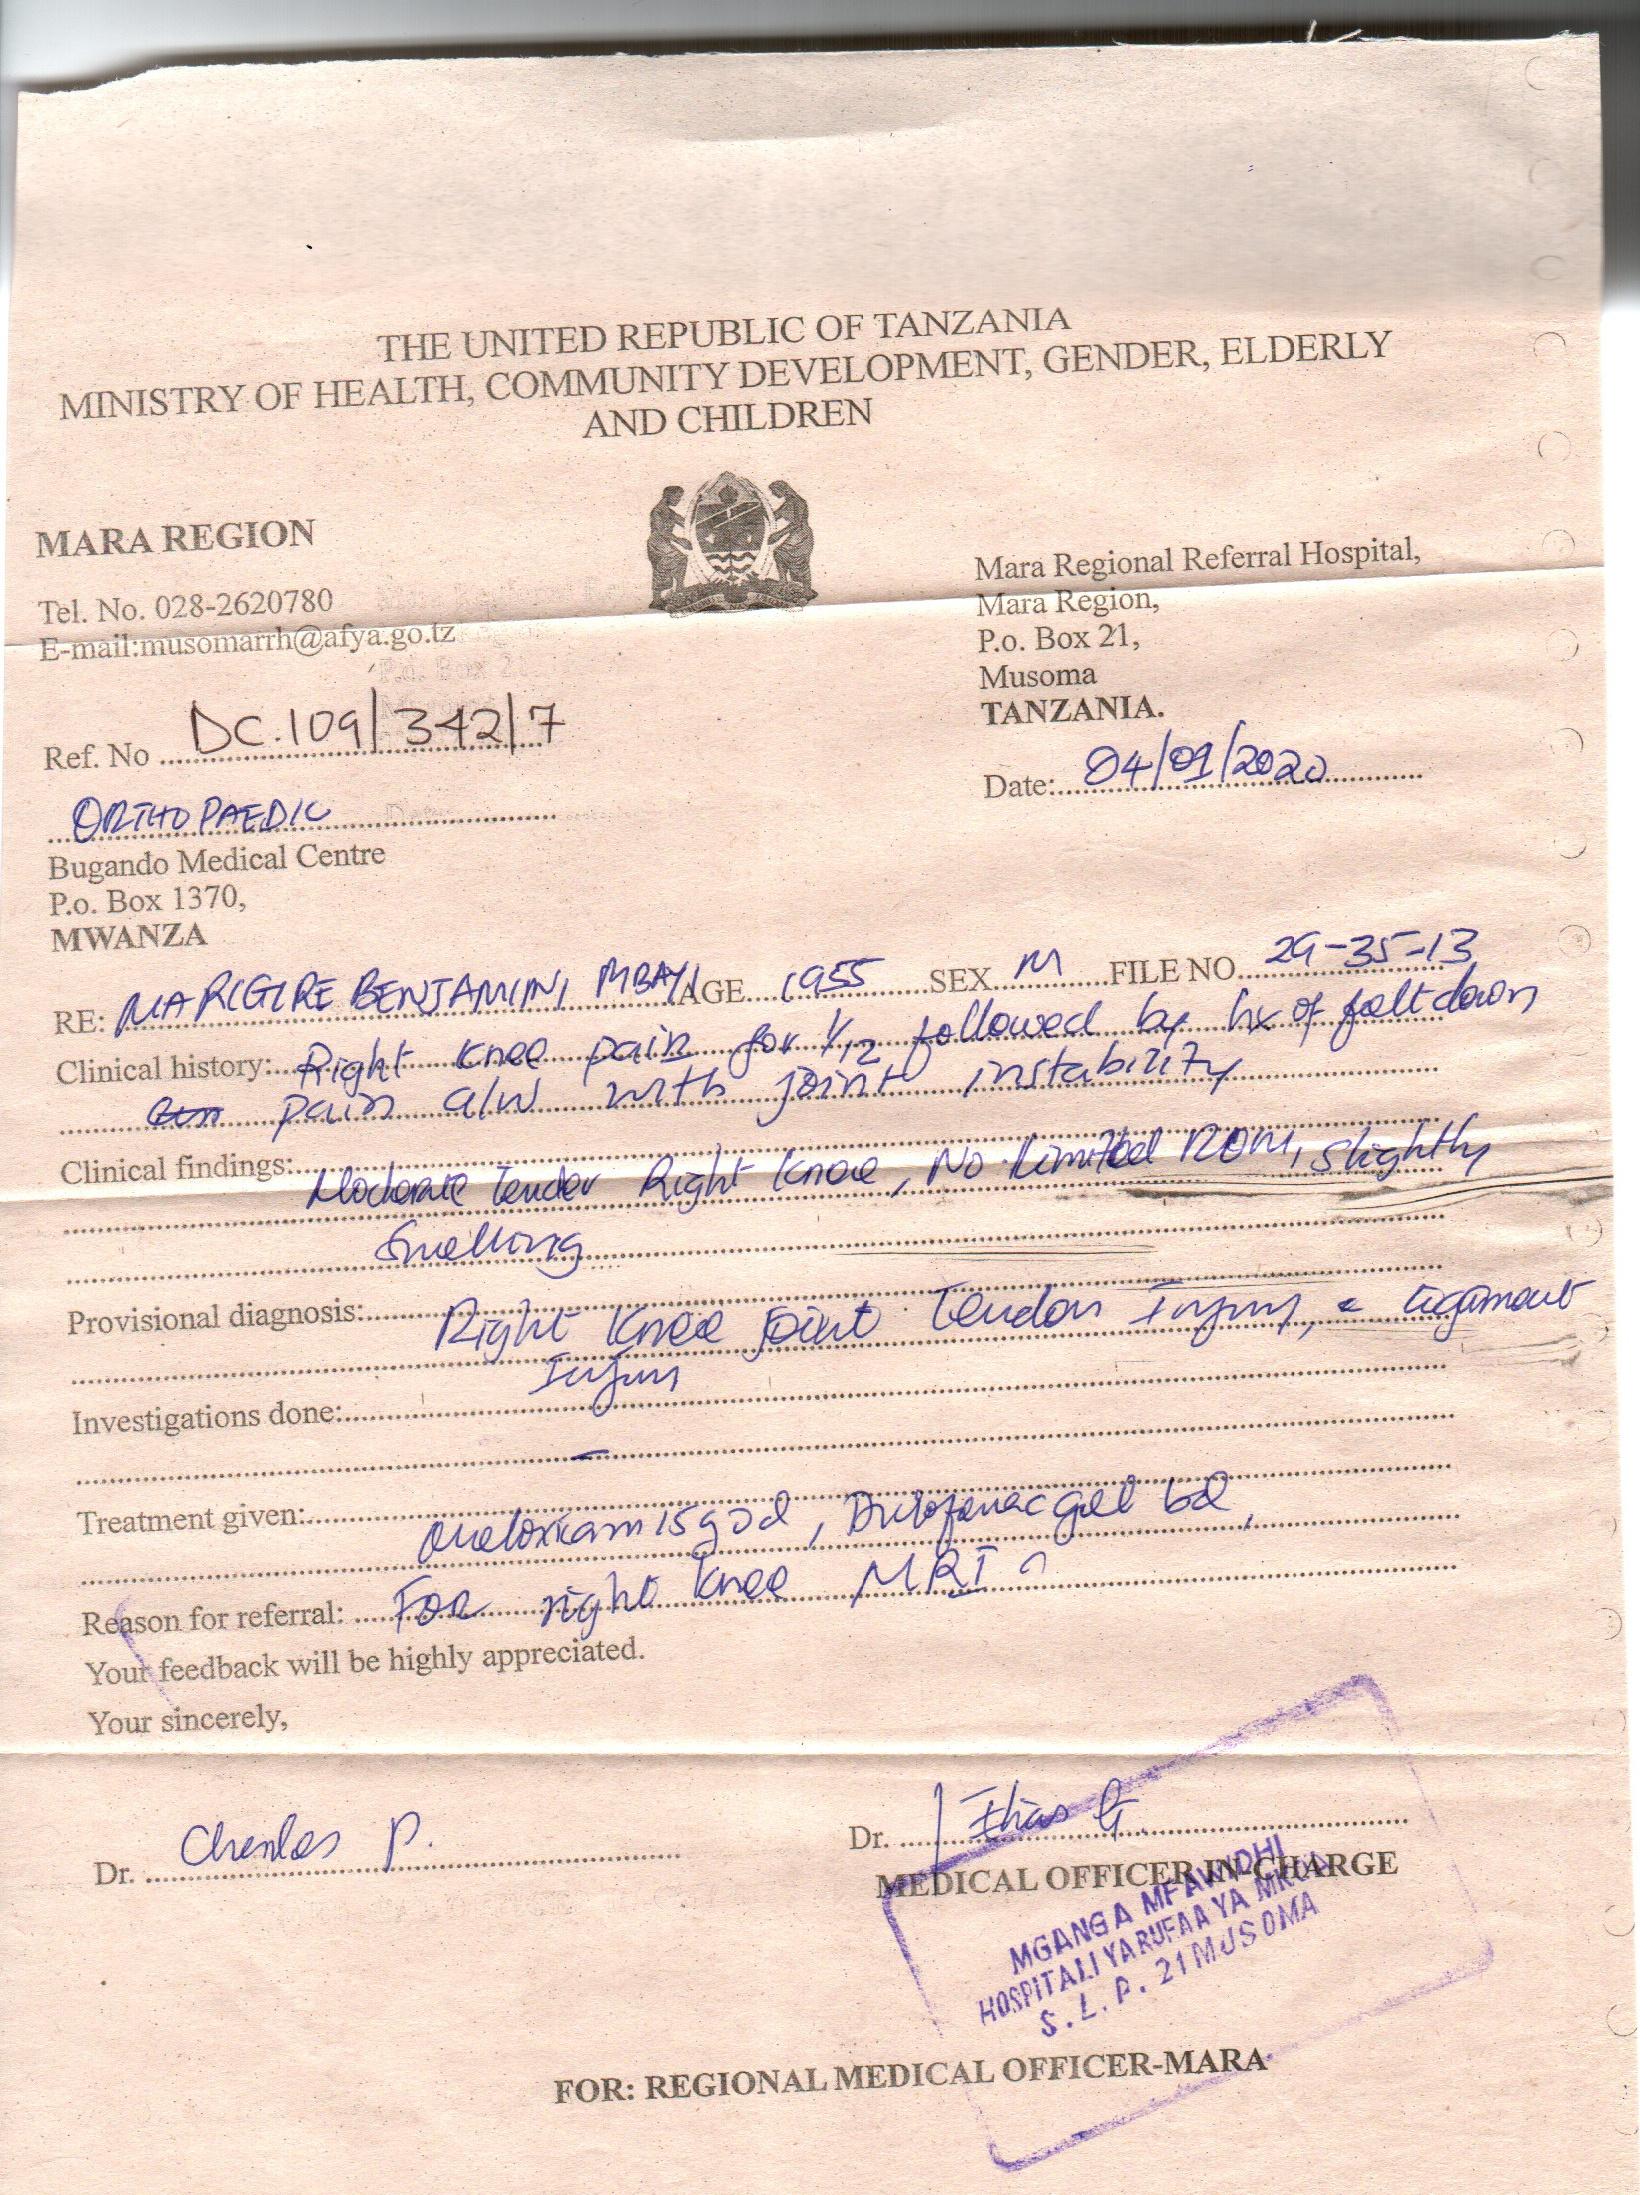 THE UNITED REPUBLIC OF TANZANIA
MINISTRY OF HEALTH, COMMUNITY DEVELOPMENT, GENDER, ELDERLY
AND CHILDREN
MARA REGION
Tel. No. 028-2620780
E-mail:musomarrh@afya.go.tz
Mara Regional Referral Hospital,
Mara Region,
P.o. Box 21,
Musoma
TANZANIA.
Ref. No DC.109/342/7
Date: 04/01/2020
ORTHOPAEDIC
Bugando Medical Centre
P.o. Box 1370,
MWANZA
RE: MARIGIRE BENJAMINI MBAYI AGE 1955 SEX M FILE NO 29-35-13
Clinical history: Right knee pain for 1/12 followed by hx of felt down
pain a/w with joint instability
Clinical findings:
Moderate tender Right knee, No limited ROM, slightly
Smelling
Provisional diagnosis:
Right knee joint tendon Injury, ligament
Injury
Investigations done:
-
Treatment given:
meloxicam 15g od, Diclofenac gel bd,
Reason for referral: For right knee MRI
Your feedback will be highly appreciated.
Your sincerely,
Dr. Charles P.
Dr. Elias G.
MEDICAL OFFICER IN-CHARGE
MGANGA MFAWIDHI
HOSPITALI YA RUFAA YA MKOA
S.L.P. 21 MUSOMA
FOR: REGIONAL MEDICAL OFFICER-MARA